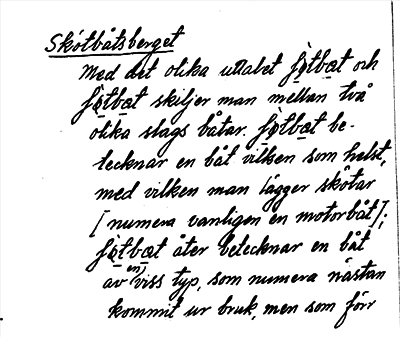 Skötbåtsberget
Med det olika uttalet fø̀tbat och
fø̀tbat skiljer man mellan två
olika slags båtar. fø̀tbat be-
tecknar en båt vilken som helst,
med vilken man lägger skötar
[numera vanligen en motorbåt];
fø̀tbat åter betecknar en båt
av en viss typ, som numera nästan
kommit ur bruk, men som förr